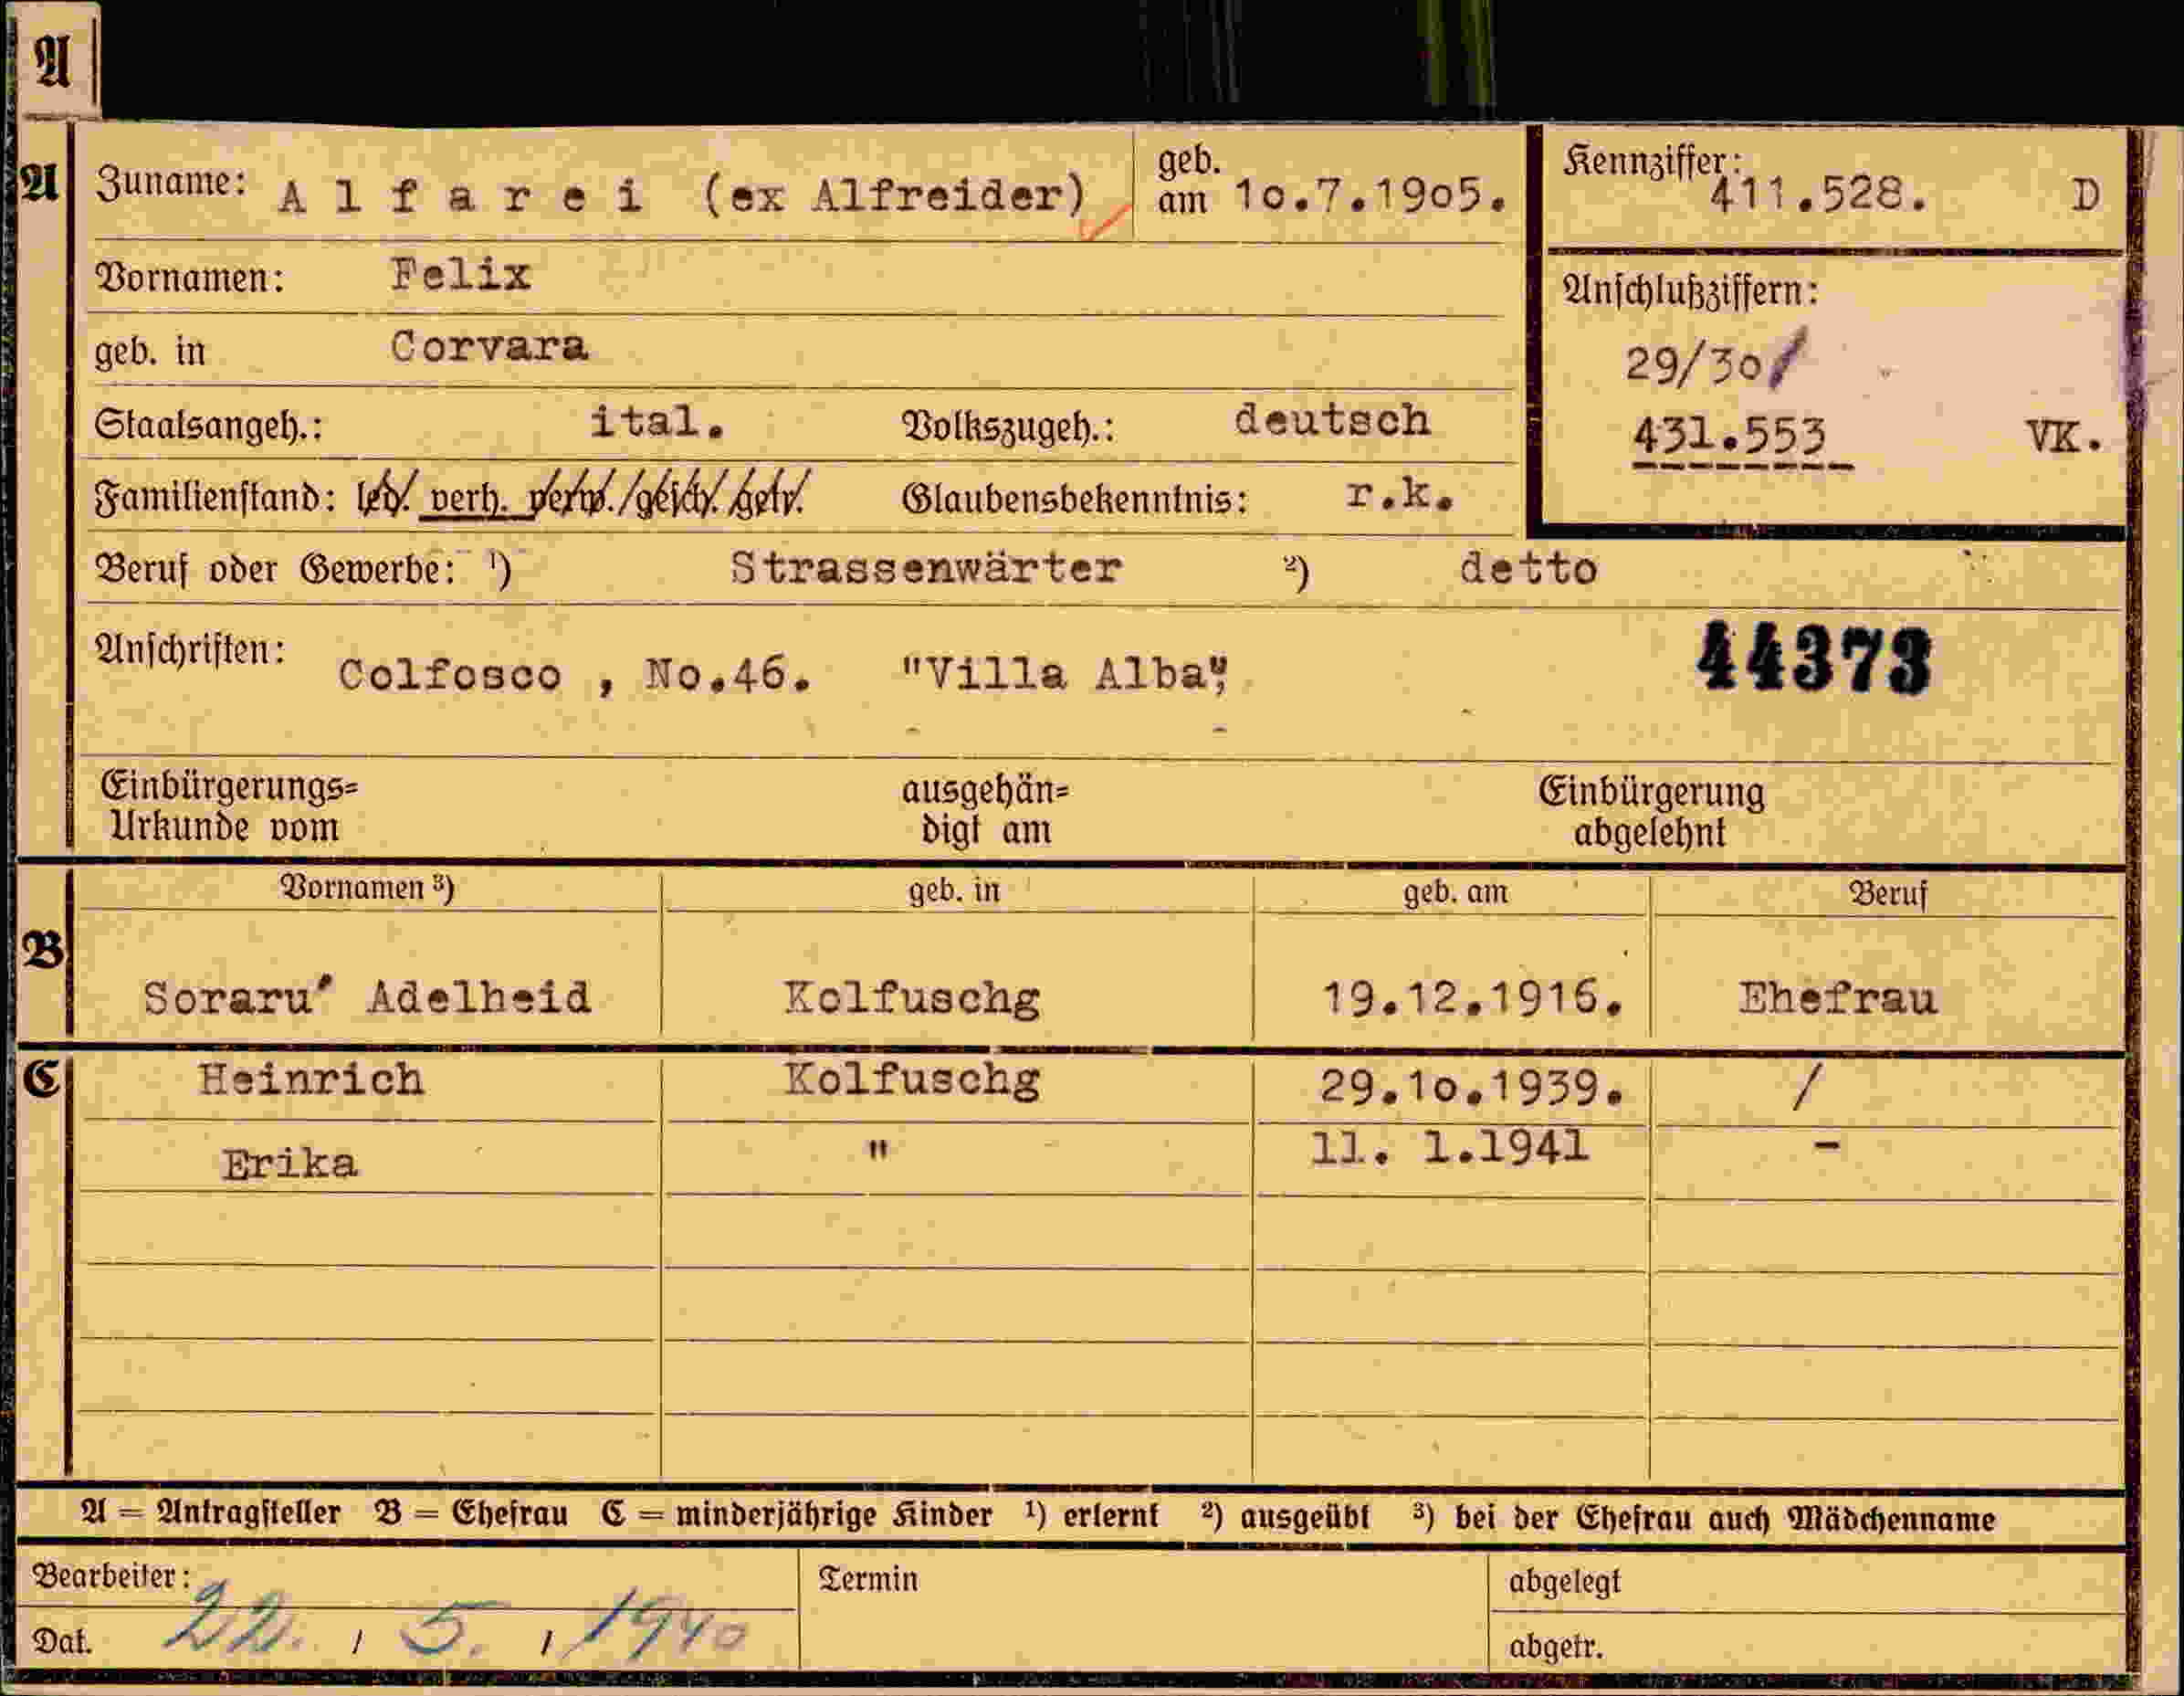 A
A Zuname: Alfarei (ex Alfreider) geb. am 1o.7.19o5. Kennziffer: 411.528. D
Vornamen: Felix
Anschlußziffern:
geb. in Corvara
29/30/
Staatsangeh.: ital. Volkszugeh.: deutsch
431.553 VK.
Familienstand: led. verh. verw./gesch. getr. Glaubensbekenntnis: r.k.
Beruf oder Gewerbe: 1) Strassenwärter 2) detto
Anschriften: Colfosco , No.46. "Villa Alba", 44373
Einbürgerungs= ausgehän= Einbürgerung
Urkunde vom digt am abgelehnt
B
Vornamen 3) geb. in geb. am Beruf
Soraru' Adelheid Kolfuschg 19.12.1916. Ehefrau
C Heinrich Kolfuschg 29.1o.1939. /
Erika " 11. 1.1941 -
A = Antragsteller B = Ehefrau C = minderjährige Kinder 1) erlernt 2) ausgeübt 3) bei der Ehefrau auch Mädchenname
Bearbeiter: Termin abgelegt
Dat. 22. / 5. / 1940 abgetr.